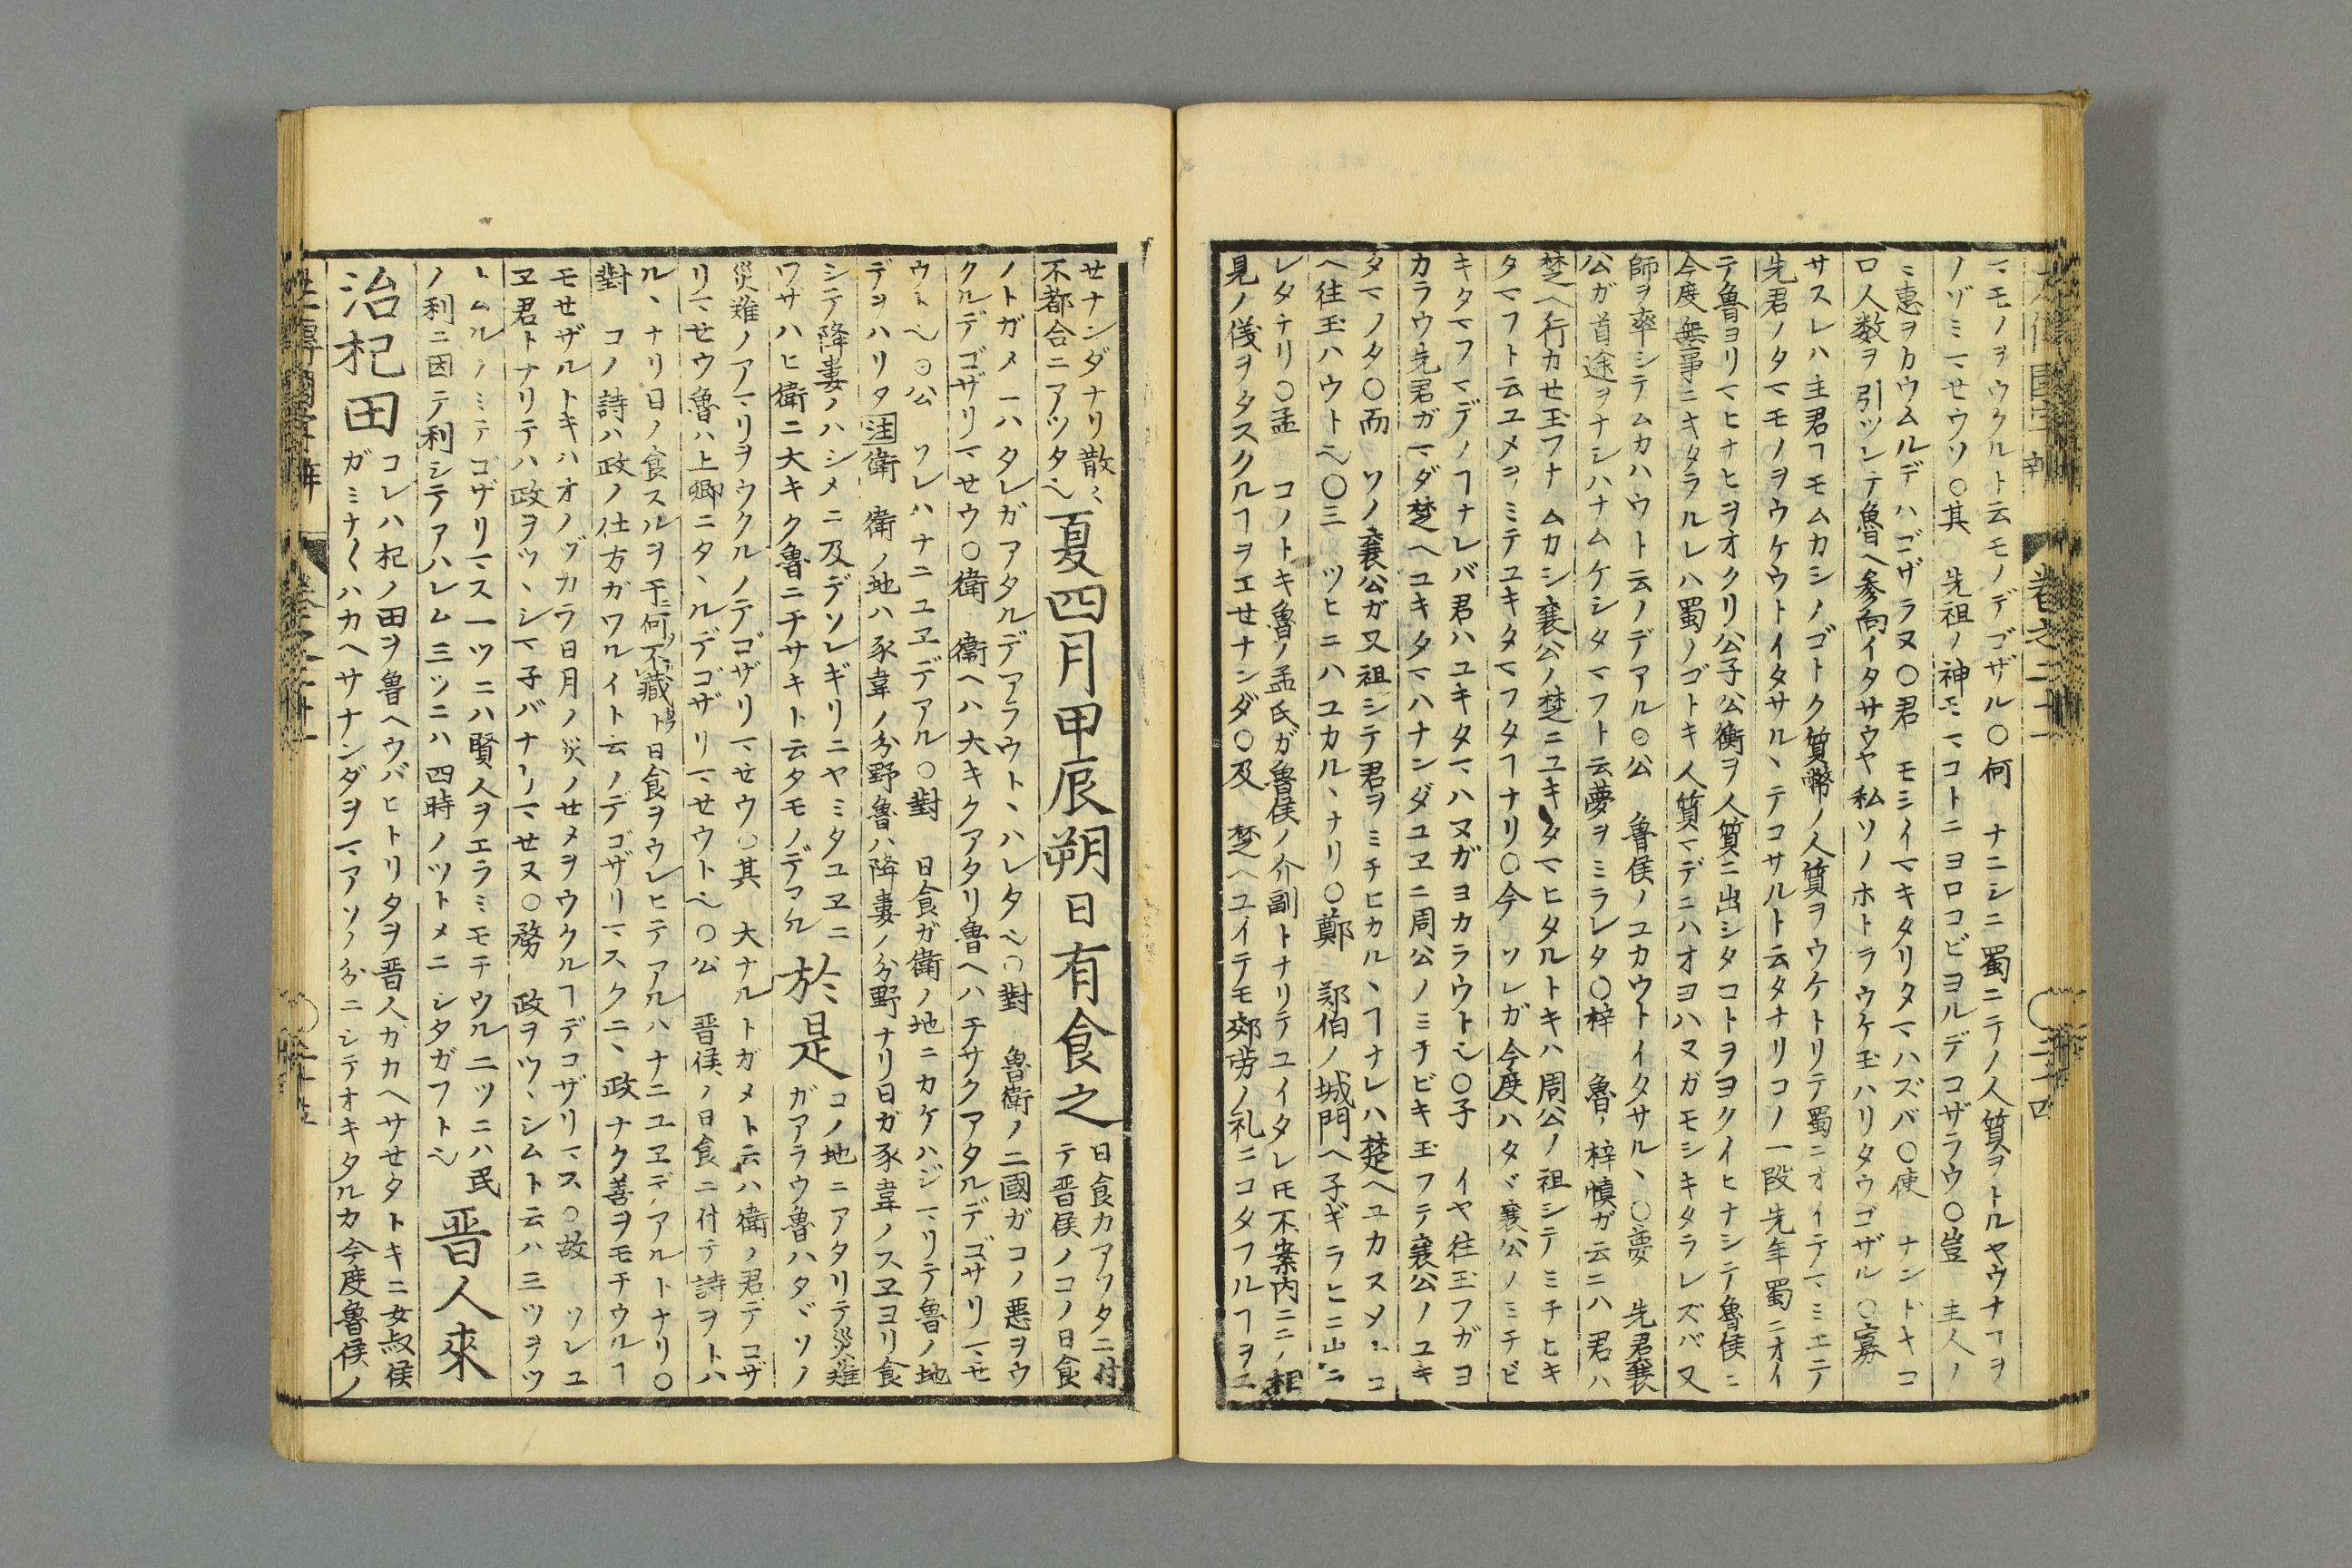 卷之二十一
ヿモノヲウクルト云モノデゴザル○何 ナニシニ蜀ニテノ人質ヲトルヤウナヿヲ
ノゾミマセウソ○其 先祖ノ神モマコトニヨロコビヨルデコザラウ○豈 主人ノ
ミ惠ヲカウムルデハゴザラヌ○君 モシイマキタリタマハズバ○使 ナンドキコ
ロ人数ヲ引ツレテ魯ヘ参向イタサウヤ私ソノホトラウケ玉ハリタウゴザル○寡
サスレハ主君ヿモムカシノゴトク質幣ノ人質ヲウケトリテ蜀ニオイテマミエテ
先君ノタマモノヲウケウトイタサルヽテコサルト云タナリコノ一段先年蜀ニオイ
テ魯ヨリマヒナヒヲオクリ公子公衡ヲ人質ニ出シタコトヲヨクイヒナシテ魯侯ニ
今度無事ニキタラルレハ蜀ノゴトキ人質マデニハオヨハヌガモシキタラレズバ又
師ヲ率シテムカハウト云ノデアル○公 魯侯ノユカウトイタサルヽ○夢 先君襄
公ガ首途ヲナシハナムケシタマフト云夢ヲミラレタ○梓 魯ノ梓慎ガ云ニハ君ハ
楚ヘ行カせ玉フナムカシ襄公ノ楚ニユキタマヒタルトキハ周公ノ祖シテミチヒキ
タマフト云ユメヲミテユキタマフタヿナリ○今 ソレガ今度ハタヾ襄公ノミチビ
キタマフマデノヿナレバ君ハユキタマハヌガヨカラウト也○子 イヤ往玉フガヨ
カラウ先君ガマダ楚ヘユキタマハナンダユヱニ周公ノミチビキ玉フテ襄公ノユキ
タマノタ○而 ソノ襄公ガ又祖シテ君ヲミチヒカルヽヿナレハ楚ヘユカスメニコ
ヘ往玉ハウト也○三 ツヒニハユカルヽナリ○鄭 鄭伯ノ城門ヘ子ギラヒニ出ニ
レタナリ○孟 コノトキ魯ノ孟氏ガ魯侯ノ介副トナリテユイタレ𪜈不案内ニニノ相
見ノ儀ヲタスクルヿヲエせナンダ○及 楚ヘユイテモ郊労ノ礼ニコタフルヿヲエ
せナンダナリ散々
不都合ニアツタ也
夏四月甲辰朔日有食之
日食カアツタニ付
テ晋侯ノコノ日食
ノトガメーハタレガアタルデアラウトヽハレタ也○對 魯衛ノ二國ガコノ悪ヲウ
クルデゴザリマせウ○衛 衛ヘハ大キクアタリ魯ヘハチサクアタルデゴサリマせ
ウト也○公 ソレハナニユヱデアル○對 日食ガ衛ノ地ニカケハジマリテ魯ノ地
デヲハリタ注衛 衛ノ地ハ豕韋ノ分野魯ハ降婁ノ分野ナリ日ガ豕韋ノスヱヨリ食
シテ降婁ノハシメニ及デソレギリニヤミタユヱニ
ワサハヒ衛ニ大キク魯ニチサキト云タモノデアル
於是
コノ地ニアタリテ災難
ガアラウ魯ハタヾソノ
災難ノアマリヲウクルノテゴザリマせウ○其 大ナルトガメト云ハ衛ノ君デコザ
リマせウ魯ハ上卿ニタヽルデゴザリマせウト也○公 晋侯ノ日食ニ付テ詩ヲトハ
ルヽナリ日ノ食スルヲ于何不藏ト日食ヲウレヒテアルハナニユヱデアルトナリ○
對 コノ詩ハ政ノ仕方ガワルイト云ノデゴザリマスクニヽ政ナク善ヲモチウルヿ
モせザルトキハオノヅカラ日月ノ災ノせメヲウクルヿデコザリマス○故 ソレユ
ヱ君トナリテハ政ヲツヽシマ子バナリマせヌ○務 政ヲツヽシムト云ハ三ツヲツ
トムルノミテゴザリマス一ツニハ賢人ヲエラミモチウル二ツニハ民
ノ利ニ因テ利シテアハレム三ツニハ四時ノツトメニシタガフト也
晋人來
治杞田
コレハ杞ノ田ヲ魯ヘウバヒトリタヲ晋人ガカヘサせタトキニ女叔侯
ガミナ〱ハカヘサナンダヲマアソノ分ニシテオキタルカ今度魯侯ノ